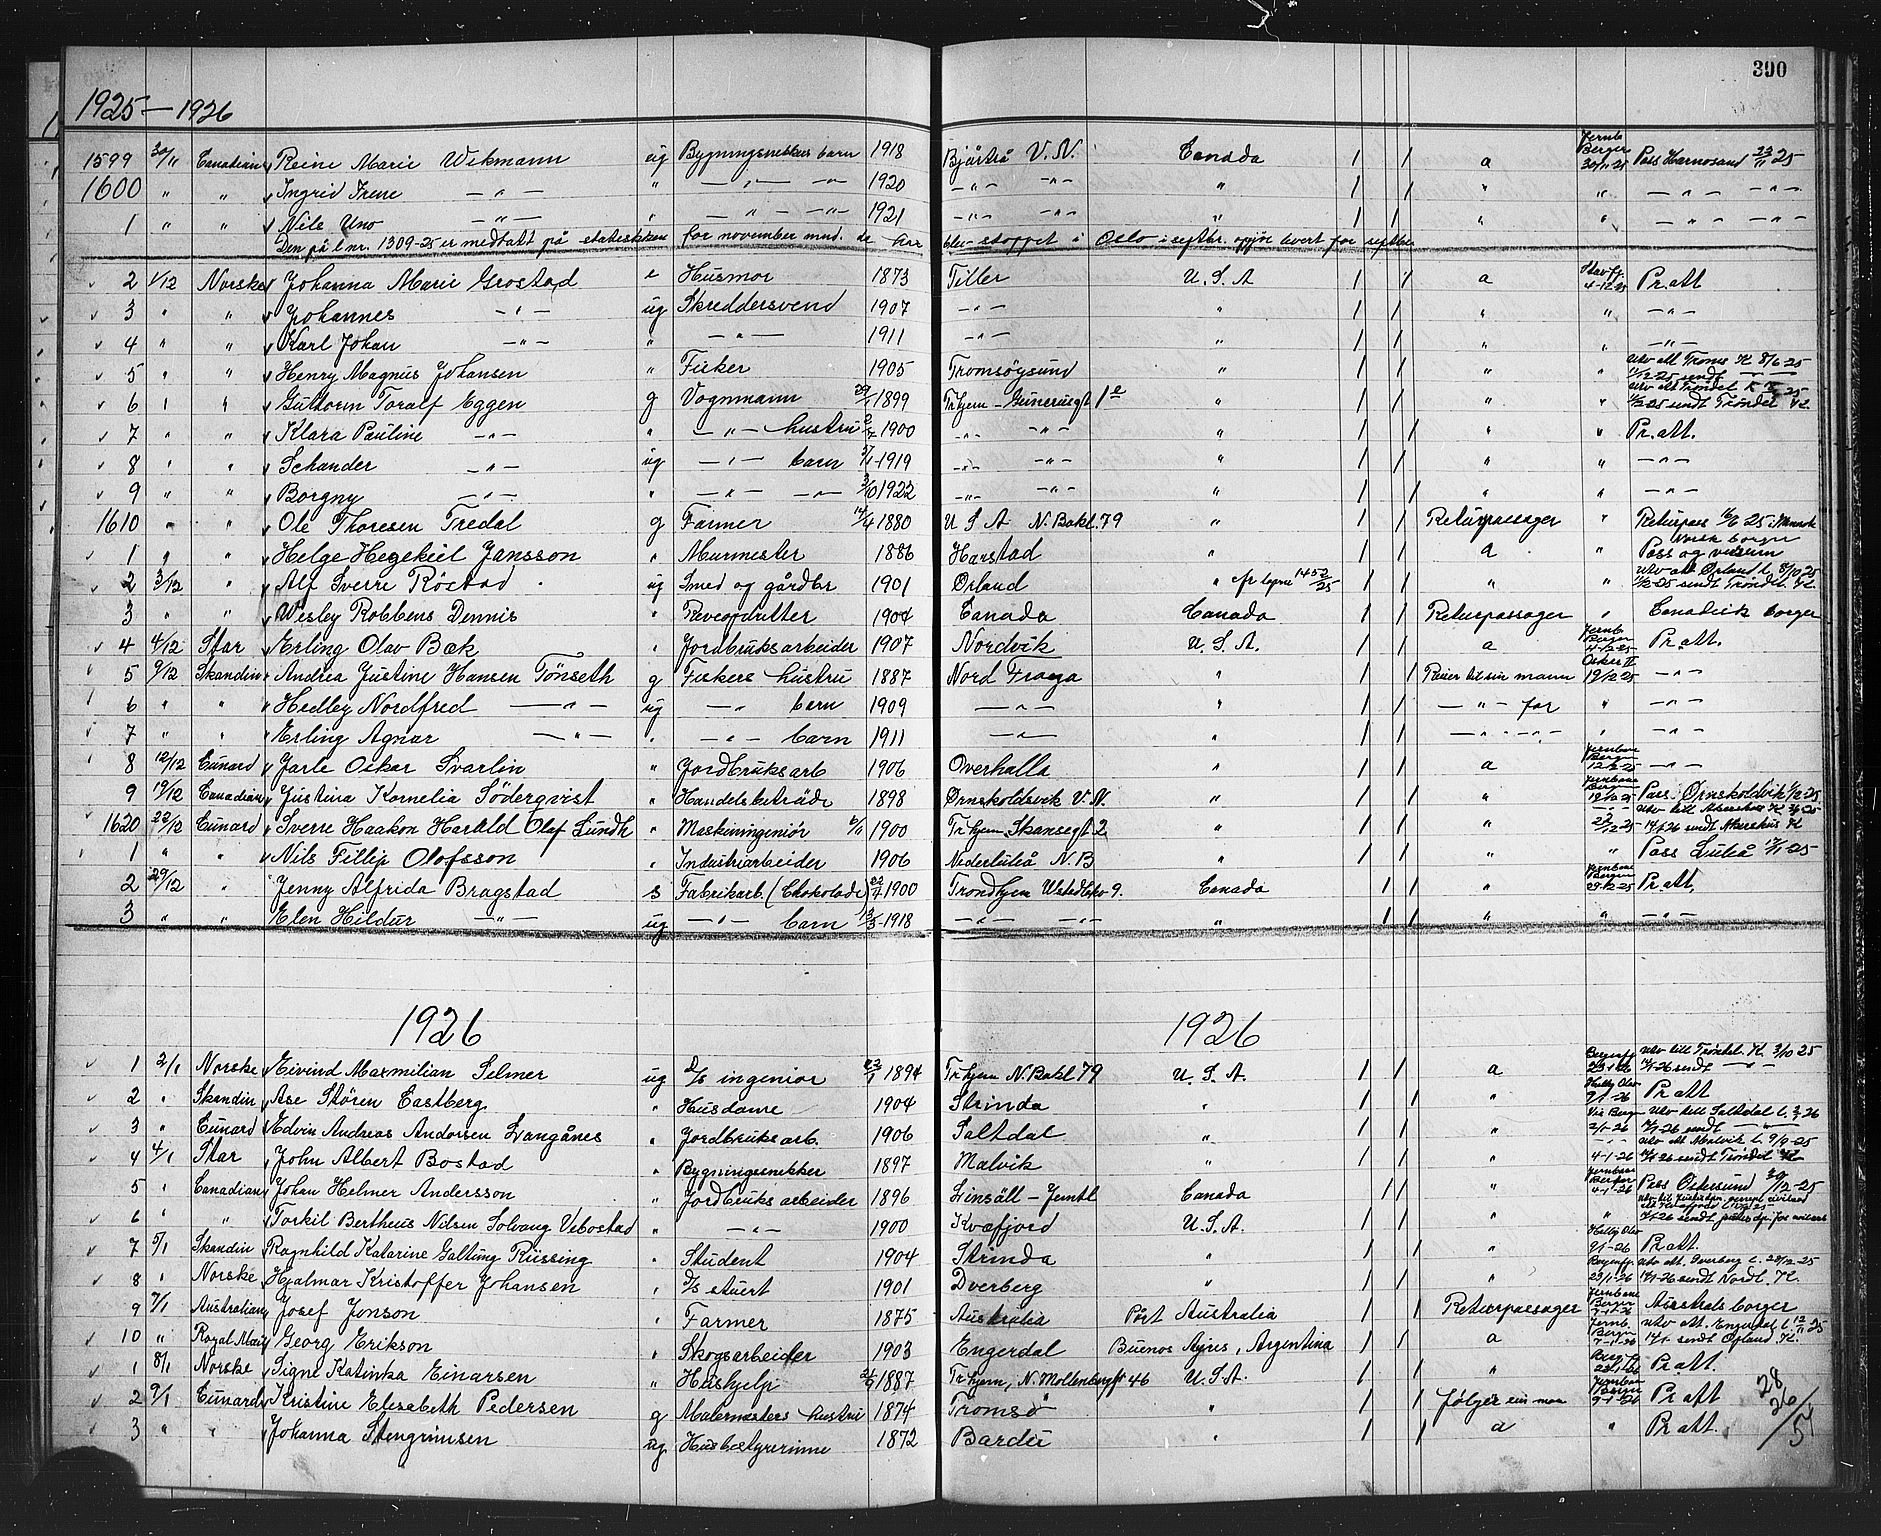 390
1925 — 1926
1599 30/11 Canadian Reine Marie Wikmann ug Bygningssnekkers barn 1918 Bjärtrå V.N. Canada / / a Jernb Bergen 30/11-25 Pass Härnosand 23/11 25
1600 " " Ingrid Irene — " — " — " — " — 1920 — " — — " — " / / " " — " — — " —
1 " " Nils Uno — " — " — " — " — 1921 — " — — " — " / / " " — " — — " —
Den på l.nr. 1309-25 er medtatt på statistikken for november mnd. da har blev stoppet i Oslo i septbr.
2 1/12 Norske Johanna Marie Grostad e Husmor 1873 Tiller U.S.A / / a Stavfj. 4-12-25 Pr. att
3 " " Johannes — " — ug Skreddersvend 1907 — " — " / / " " — " —
4 " " Karl Johan — " — " — " — 1911 — " — " / / " " — " —
5 " " Henry Magnus Johansen " Fisker 1905 Tromsöysund " / / " " utv att Troms K 8/6-25 11/12-25 sendt — " —
6 " " Guttorm Toralf Eggen g Vognmann 29/1 1899 Tr.hjem - Gunerusgt 1e " / / " " utv att Tröndel K 25 11/12-25 sendt Tröndel K.
7 " " Klara Pauline — " — " — " — hustru 2/7 1900 — " — — " — " / / " " Pr. att.
8 " " Schander — " — ug — " — barn 5/1-1919 — " — — " — " / / " " — " —
9 " " Borgny — " — " — " — — " — 3/10 1922 — " — — " — " / / " " — " —
1610 " " Ole Thoresen Tredal g Farmer 14/4 1880 U S A N. Bakl. 79 " / / Returpassager " Returpass 16/6 25 i Minnesota Norsk borger
1 " " Helge Hegekiel Jansson " Murmester 1886 Harstad " / / a " Pass og visum
2 3/12 " Alf Sverre Röstad ug Smed og gårdbr 1901 Örland " cfr. lepnr 1452/25 / / " " utv att Örland L 8/10 25 11/12-25 sendt Tröndel. K.
3 " " Wesley Robbens Dennis " Reveopdretter 1904 Canada Canada / / Returpassager " Canadisk borger
4 4/12 Star Erling Olav Bæk " Jordbruksarbeider 1907 Nordvik U.S.A. / / a Jernb. Bergen 4-12-25 Pr. att.
5 9/12 Skandin Andrea Justine Hansen Tönseth g Fiskers hustru 1887 Nord Fröya " / / Reiser til sin mann Oskar II 19/12 25 — " —
6 " " Hedley Nordfred — " — ug — " — barn 1909 — " — " / / — " — far " — " —
7 " " Erling Agnar — " — " — " — barn 1911 — " — " / / — " — " — " — " —
8 12/12 Cunard Jarle Oskar Svarlin " Jordbruksarb 1906 Overhalla " / / a Jernbane Bergen 12/12-25 — " —
9 19/12 Canadian Justina Kornelia Söderqvist " Handelsbeträde 1898 Örnskoldsvik V.N. " / / " Jernbane Bergen 19/12 25 Pass. Örnskoldsvik 1/12 25
1620 22/12 Cunard Sverre Haakon Harald Olaf Lundh " Maskiningeniör 6/11 1900 Tr.hjem Skansegt 2 " / / " — " — 22/12 25 utv till Akershus K 25 14/1-26 sendt Akershus K
1 " " Nils Fillip Olofsson " Industriarbeider 1906 Nederluleå N.B " / / " " Pass Luleå 12/11-25
2 29/12 " Jenny Alfrida Bragstad s Fabrikarb (Chokolade) 22/7 1900 Trondhjem Ulstadlökv 9. Canada / / " Jernbane Bergen 29-12-25 Pr. att.
3 " " Elen Hildur — " — ug — " — barn 13/3-1918 — " — — " — " / / " " — " —
1926 1926
1 2/1 Norske Eivind Maxmilian Selmer ug D/s ingeniör 23/1 1894 Tr.hjem N. Bakl 79 U.S.A. / / a Bergensfj 23/1-26 utv till Tröndel. K. 3/10 25 14/1-26 sendt — " —
2 " Skandin Ase Stören Eastberg " Husdame 1904 Strinda " / / " Hellig Olav 9/1-26 Pr att
3 " Cunard Edvin Andreas Andorsen Langånes " Jordbruksarb. 1906 Saltdal " / / " Via Berg 2/1-26 utv till Saltdal L. 2/1 26 14/1-26 sendt — " —
4 4/1 Star John Albert Bostad " Bygningssnekker 1897 Malvik " / / " — " — 4-1-26 utv att Malvik L 9/9-25 14/1 26 sendt Tröndel K
5 " Canadian Johan Helmer Andersson " Jordbruksarbeider 1896 Linsäll - Jemtl Canada / / " Jernbane Bergen 4-1-26 Pass Östersund 30/12-25
6 " " Torkil Bertheus Nilsen Solvang Vebostad " — " — 1900 Kvæfjord U.S.A. / / " " 14/1-26 sendt justisdp. for
7 5/1 Skandin Ragnhild Katarine Galtung Rüssing " Student 1904 Strinda " / / " Hellig Olav 9/1-26 Pr. att.
8 " Norske Hjalmar Kristoffer Johansen " D/s stuert 1901 Dverberg " / / " Bergensfj 23/1-26 utv att. Dverberg L. 28/12-25 14/1-26 sendt Nordl. K.
9 7/1 Australian Josef Jonson " Farmer 1875 Australia Pört Australia / / Returpassager Jernbane Bergen 7-1-26 Australs borger
10 " Royal Mail Georg Erikson " Skogsarbeider 1903 Engerdal Buenos Ayres, Argentina / / a Jernb. Bergen 7-1-26 utv att. Engerdal L 12/11 25 14/1- sendt Opland K.
1 8/1 Norske Signe Katinka Einarsen " Hushjelp 1887 Tr.hjem, N. Mollenberggt 46 U.S.A. / / " Berg.fj 23/1-26 Pr att.
2 9/1 Cunard Kristine Elesabeth Pedersen g Malermesters hustru 1874 Tromsö " / / følger sin man Jernbane Bergen 9-1-26 Pr att
3 " " Johanna Stengrimsen ug Husbestyrerinne 1872 Bardu " / / a " Pr att.
28
26/51